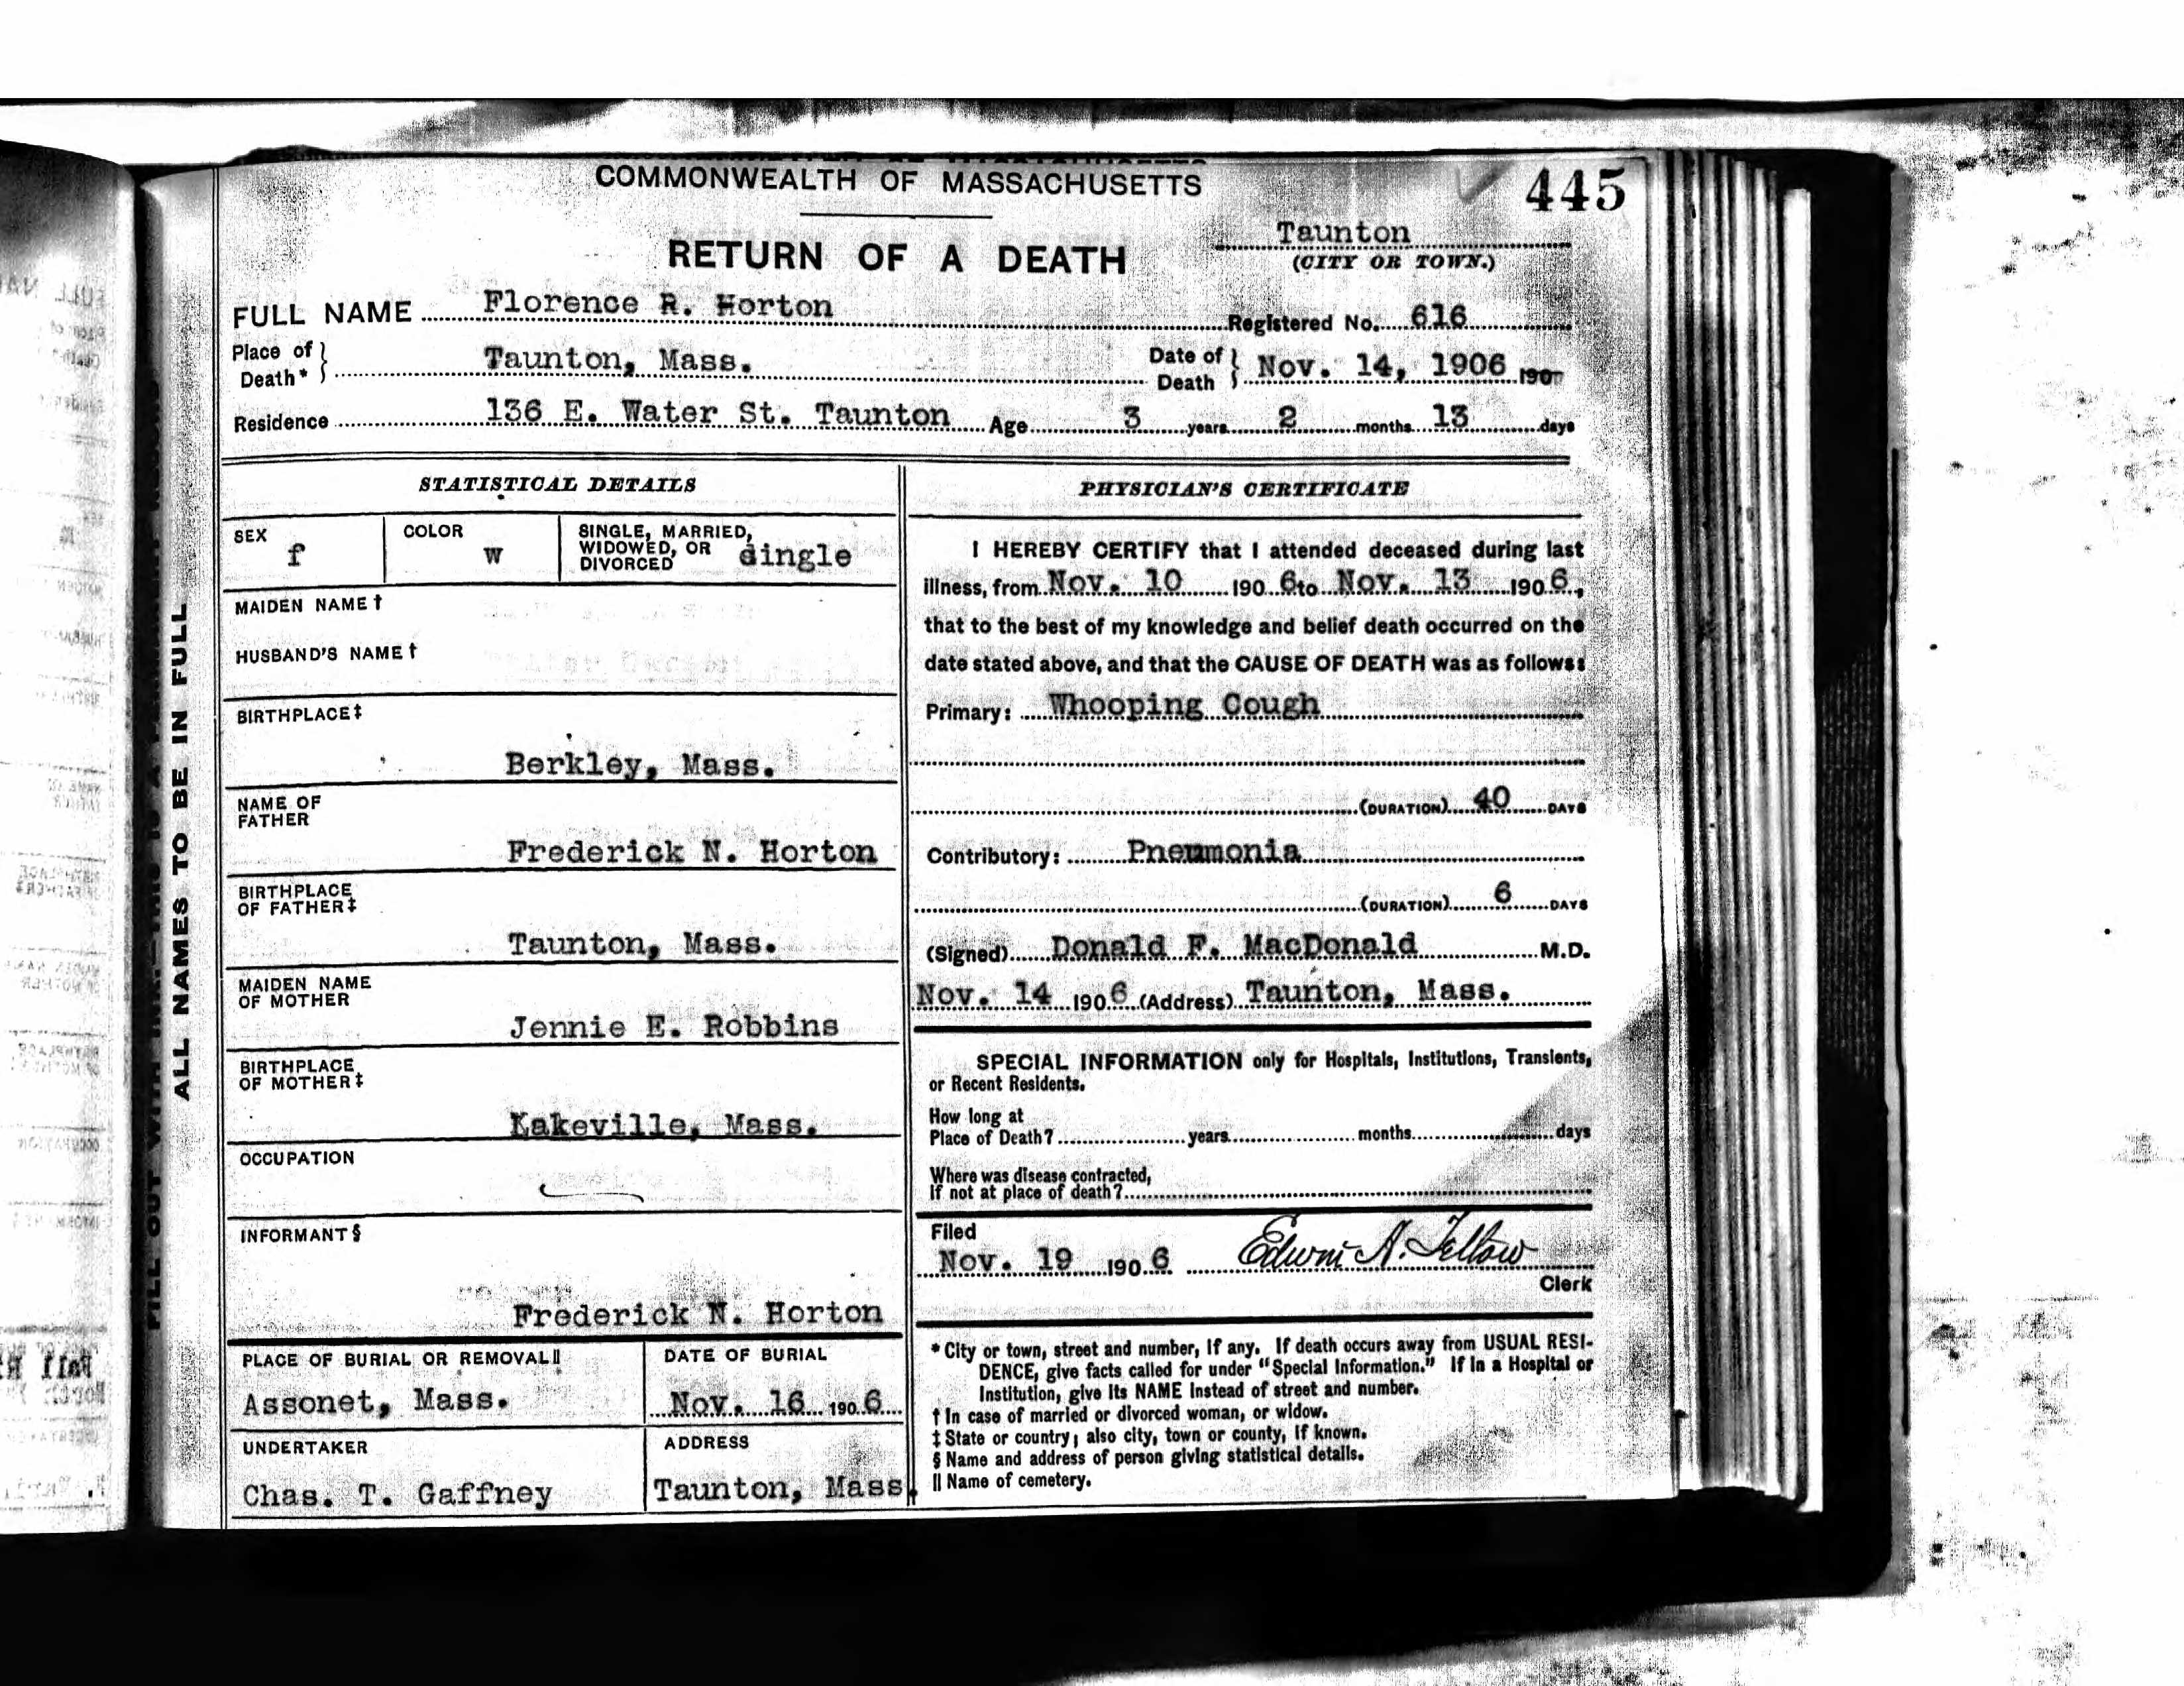 COMMONWEALTH OF MASSACHUSETTS
445
RETURN OF A DEATH
Taunton
(CITY OR TOWN.)
FULL NAME Florence R. Horton Registered No. 616
Place of Death* Taunton, Mass. Date of Death Nov. 14, 1906 190
Residence 136 E. Water St. Taunton Age 3 years 2 months 13 days
STATISTICAL DETAILS
SEX f
COLOR w
SINGLE, MARRIED, WIDOWED, OR DIVORCED single
MAIDEN NAME †
HUSBAND'S NAME †
BIRTHPLACE ‡
Berkley, Mass.
NAME OF FATHER
Frederick N. Horton
BIRTHPLACE OF FATHER ‡
Taunton, Mass.
MAIDEN NAME OF MOTHER
Jennie E. Robbins
BIRTHPLACE OF MOTHER ‡
Lakeville, Mass.
OCCUPATION
INFORMANT §
Frederick N. Horton
PLACE OF BURIAL OR REMOVAL ||
Assonet, Mass.
DATE OF BURIAL
Nov. 16 1906
UNDERTAKER
Chas. T. Gaffney
ADDRESS
Taunton, Mass.
PHYSICIAN'S CERTIFICATE
I HEREBY CERTIFY that I attended deceased during last
illness, from Nov. 10 1906 to Nov. 13 1906,
that to the best of my knowledge and belief death occurred on the
date stated above, and that the CAUSE OF DEATH was as follows:
Primary: Whooping Cough
(DURATION) 40 DAYS
Contributory: Pneumonia
(DURATION) 6 DAYS
(Signed) Donald F. MacDonald M.D.
Nov. 14 1906 (Address) Taunton, Mass.
SPECIAL INFORMATION only for Hospitals, Institutions, Transients,
or Recent Residents.
How long at
Place of Death? years months days
Where was disease contracted,
If not at place of death?
Filed
Nov. 19 1906 Edwin A. Tetlow
Clerk
* City or town, street and number, if any. If death occurs away from USUAL RESI-
DENCE, give facts called for under "Special Information." If in a Hospital or
Institution, give its NAME instead of street and number.
† In case of married or divorced woman, or widow.
‡ State or country; also city, town or county, if known.
§ Name and address of person giving statistical details.
|| Name of cemetery.
ALL NAMES TO BE IN FULL